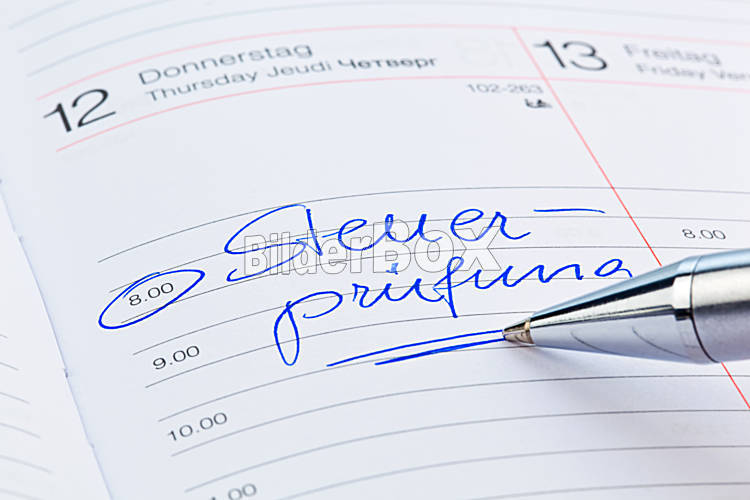 12 Donnerstag
Thursday Jeudi Четверг
102-263
13 Freitag
Friday
Steuer-
prüfung
8.00
8.00
9.00
10.00
11.00
BilderBOX